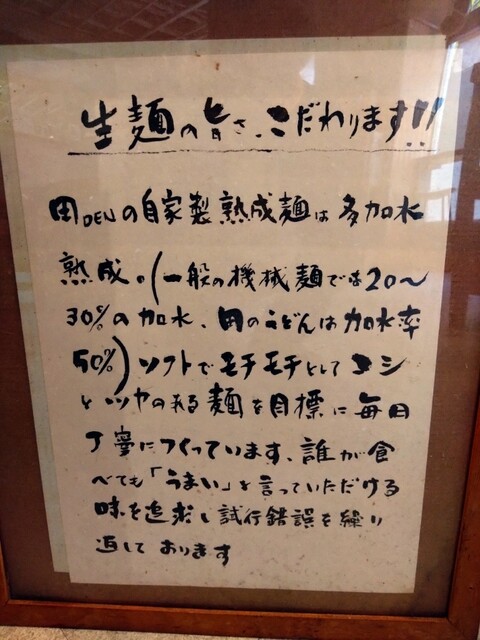 生麺の旨さ、こだわります!!
田DENの自家製熟成麺は多加水
熟成。(一般の機械麺では20〜
30%の加水、田のうどんは加水率
50%)ソフトでモチモチとしてコシ
とツヤのある麺を目標に毎日
丁寧につくっています、誰が食
べても「うまい」と言っていただける
味を追求し試行錯誤を繰り
返しております